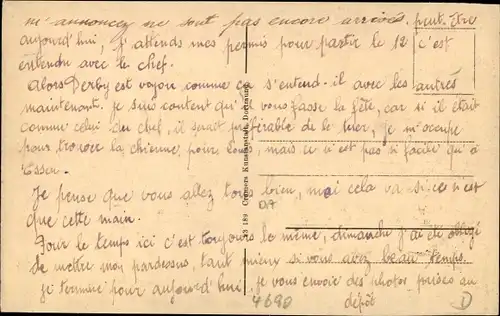 m'annoncez ne sont pas encore arrivés. peut-être
aujourd'hui, j'attends mes permis pour partir le 12 c'est
entendu avec le chef.
Alors Derby est voyou comme ça s'entend. il avec les autres
maintenant. je suis content qu'il vous fasse la fête, car si il était
comme celui du chef, il serait préférable de le tuer, je m'occupe
pour trouver la chienne pour vous, mais ce n'est pas si facile qu'à
Essen.
Je pense que vous allez tous bien, moi cela va si ce n'est
que cette main.
Pour le temps ici c'est toujours le même, dimanche j'ai été obligé
de mettre mon pardessus, tant mieux si vous avez beau temps.
je termine pour aujourd'hui je vous envoie des photos prises au
dépôt
23 189 Cramers Kunstanstalt, Dortmund
4690
D